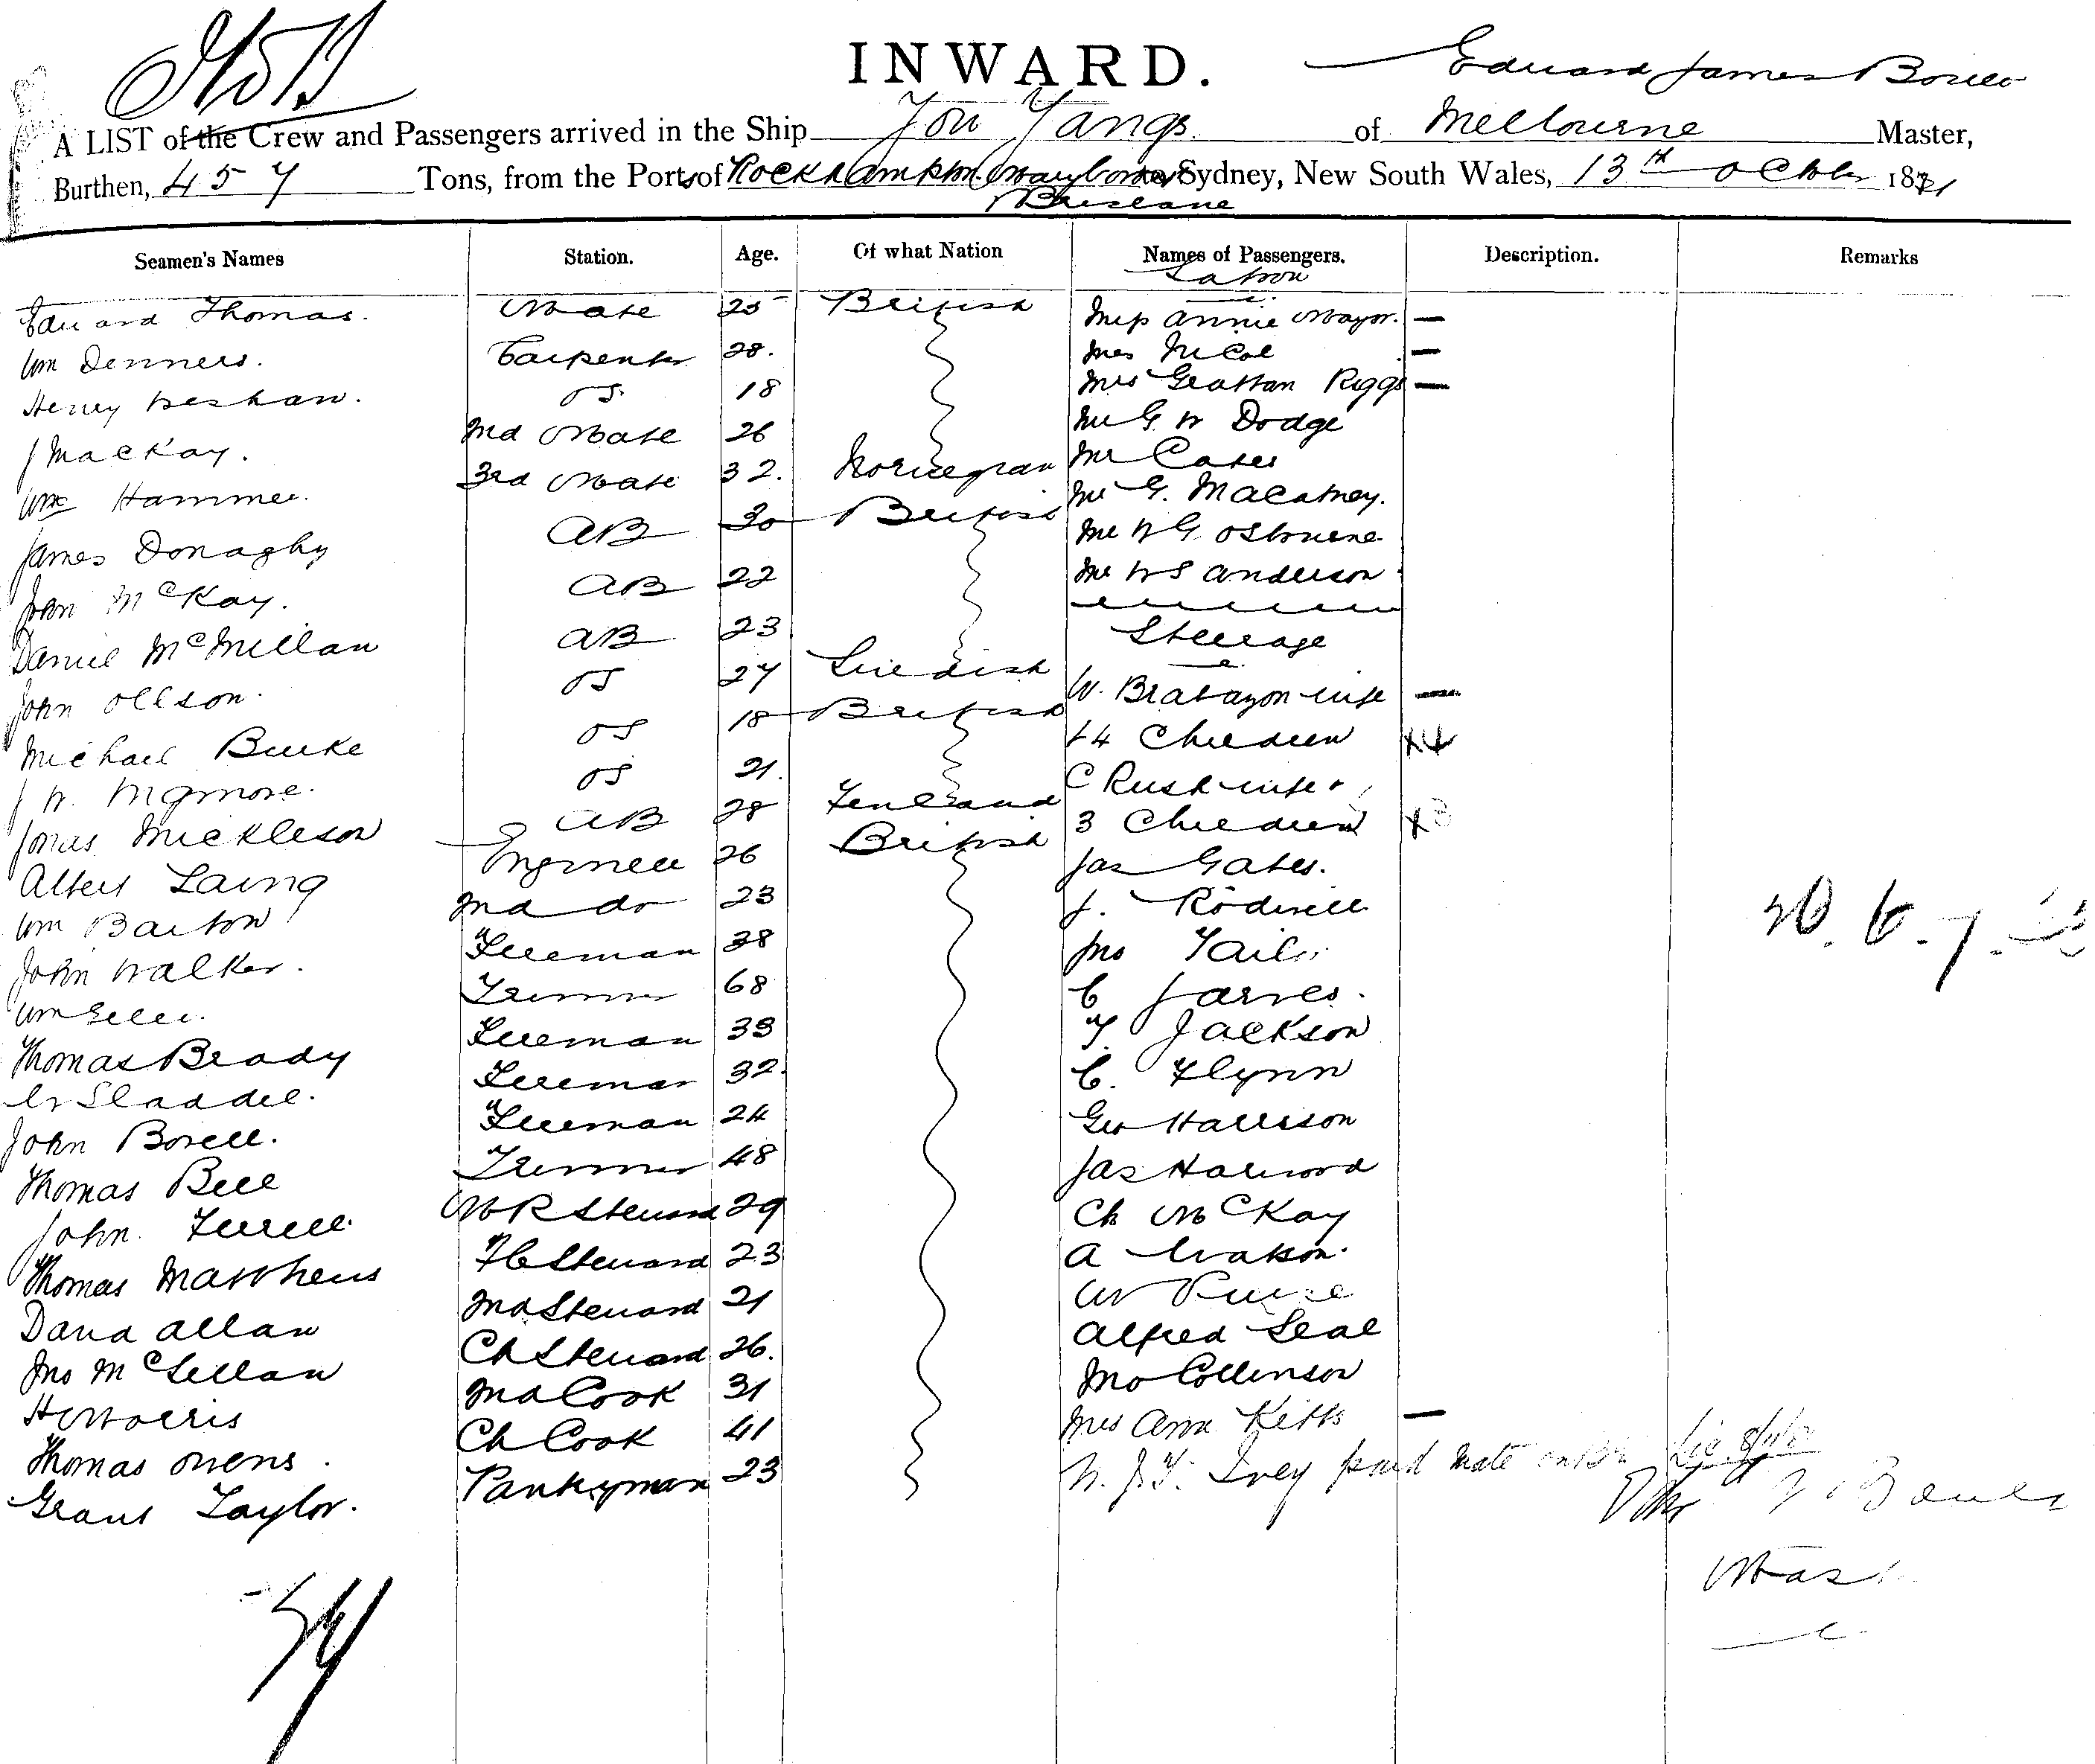 INWARD.
Edward James Boielo
A LIST of the Crew and Passengers arrived in the Ship You Yangs of Melbourne Master,
Burthen, 457 Tons, from the Ports of Rockhampton Maryboro & Sydney, New South Wales, 13th October 18
Brisbane
Seamen's Names Station. Age. Of what Nation Names of Passengers. Description. Remarks
Saloon
Edward Thomas. Mate 25 British Miss Annie Mayor. —
Wm Denners. Carpenter 28. Mrs McCol —
Henry 18 Mrs Grattan Riggs —
J MacKay. 2nd Mate 26 Mr G W Dodge
Wm Hammer. 3rd Mate 32. Norwegian Mr Cates
James Donaghy AB 30 British Mr G. Macatney.
John McKay. AB 22 Mr W G Osbourne
Daniel McMillan AB 23 Mr W S Anderson
Steerage
John Ollson. OS 27 Swedish W. Brabazon wife —
Michael Burke OS 18 British + 4 Children
J W. Wigmore. OS 21. C Rush wife +
Jonas Mickleson AB 28 Finland 3 Children
Albert Laing Engineer 26 British Jas Gates.
Wm Barton 2nd do 23 J. Rodwell
John Walker. Fireman 38 Jno
Wm Trimmer 68 C Jarves.
Thomas Brady Fireman 33 T. Jackson
W Sladdel. Fireman 32. C. Flynn
John Borell. Fireman 24 Geo Harrison
Thomas Bell Trimmer 48 Jas Harwood
John Ferrell. Steward 29 Ch McKay
Thomas Matthews FC Steward 23 A Watson.
David Allan 2nd Steward 21 W
Jno McLellan Ch Steward 26. Alfred Seal
H Morris 2nd Cook 31 Jno Collinson
Thomas Owens. Ch Cook 41 Mrs Ann Kitts —
Grant Taylor. Pantryman 23 W. J. F. Ivey